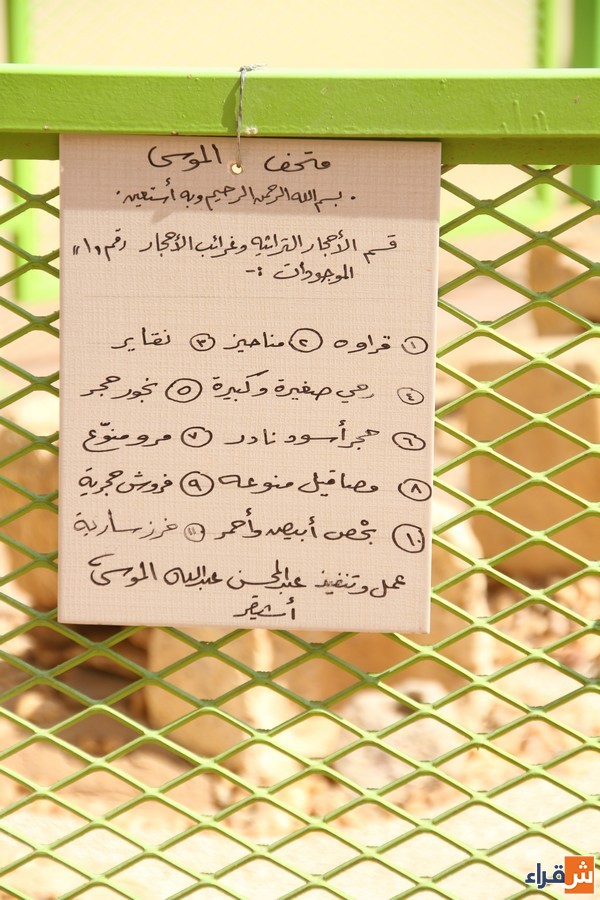 متحف الموسى
. بسم الله الرحمن الرحيم وبه أستعين .
قسم الأحجار التراثيه وغرائب الأحجار رقم "١"
الموجودات :-
١ قراوه ٢ مناحيز ٣ نقاير
٤ رحي صغيرة وكبيرة ٥ نجور حجر
٦ حجر أسود نادر ٧ مرو منوّع
٨ مصاقيل منوعه ٩ فروش حجرية
١٠ بخص أبيض وأحمر ١١ خرز سارية
عمل وتنفيذ عبدالمحسن عبدالله الموسى
أشيقر
شقراء